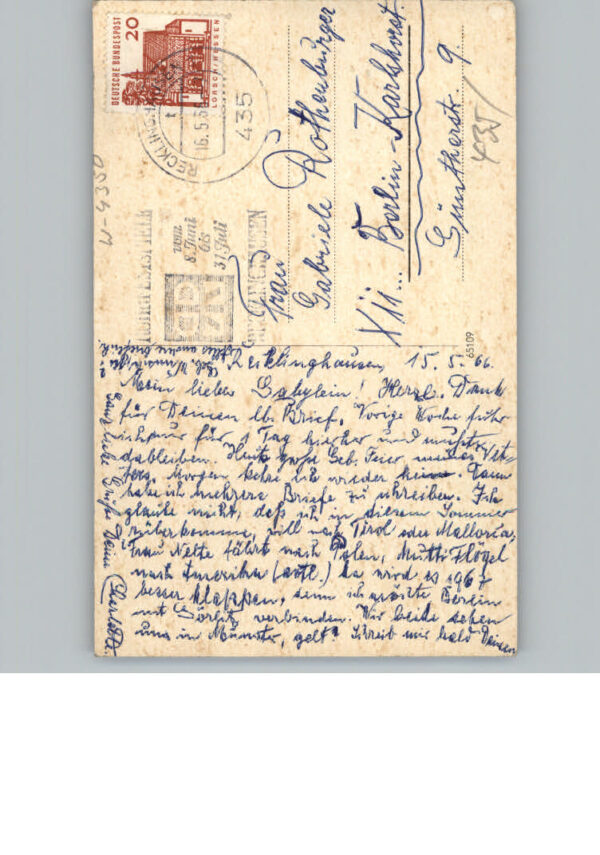 DEUTSCHE BUNDESPOST
20
LORSCH/HESSEN
RECKLINGHAUSEN
16.5.6
435
RUHRFESTSPIELE
vom
8. Juni
bis
31. Juli
RECKLINGHAUSEN
W-4350
Frau
Gabriele Rothenburger
XII... Berlin-Karlshorst
Güntherstr. 9.
435
65109
Recklinghausen, 15.5.66.
Mein liebes Gabylein! Herzl. Dank
für Deinen lb. Brief. Vorige Woche fuhr
ich nur für 1 Tag hierher und mußte
dableiben. Heute große Geb. Feier meines Vet-
ters. Morgen kehre ich wieder heim. Dann
habe ich mehrere Briefe zu schreiben. Ich
glaube nicht, daß ich in diesem Sommer
rüberkomme, will nach Tirol oder Mallorca,
Frau Nette fährt nach Polen, Mutti Flögel
nach Amerika (evtl.) Da wird es 1967
besser klappen, denn ich möchte Berlin
mit Görlitz verbinden. Wir beide sehen
uns in Münster, gelt? Schreib mir bald Deinen
Ganz liebe Grüße Deine Charlotte.